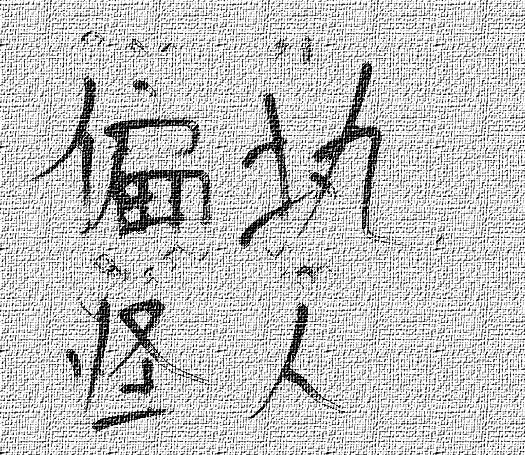 偏执
怪人